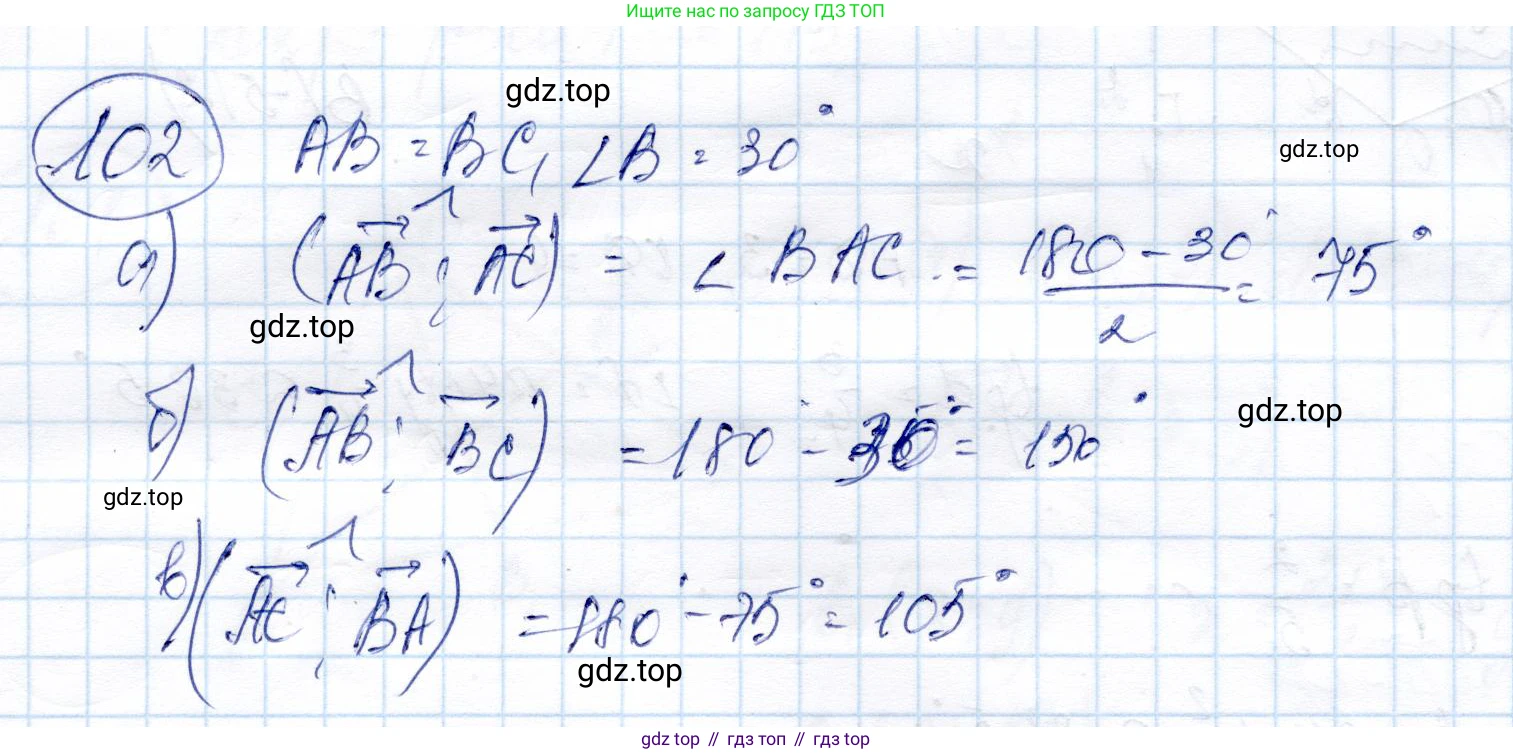 Ищите нас по запросу ГДЗ ТОП
gdz.top
102 AB = BC, ∠B = 30°
gdz.top
а) (AB⃗ ; AC⃗)^ = ∠ BAC = (180 - 30°)/2 = 75°
gdz.top
б) (AB⃗ ; BC⃗)^ = 180° - 30° = 150°
gdz.top
gdz.top
в) (AC⃗ ; BA⃗)^ = 180° - 75° = 105°
gdz.top
gdz top // гдз топ // gdz.top